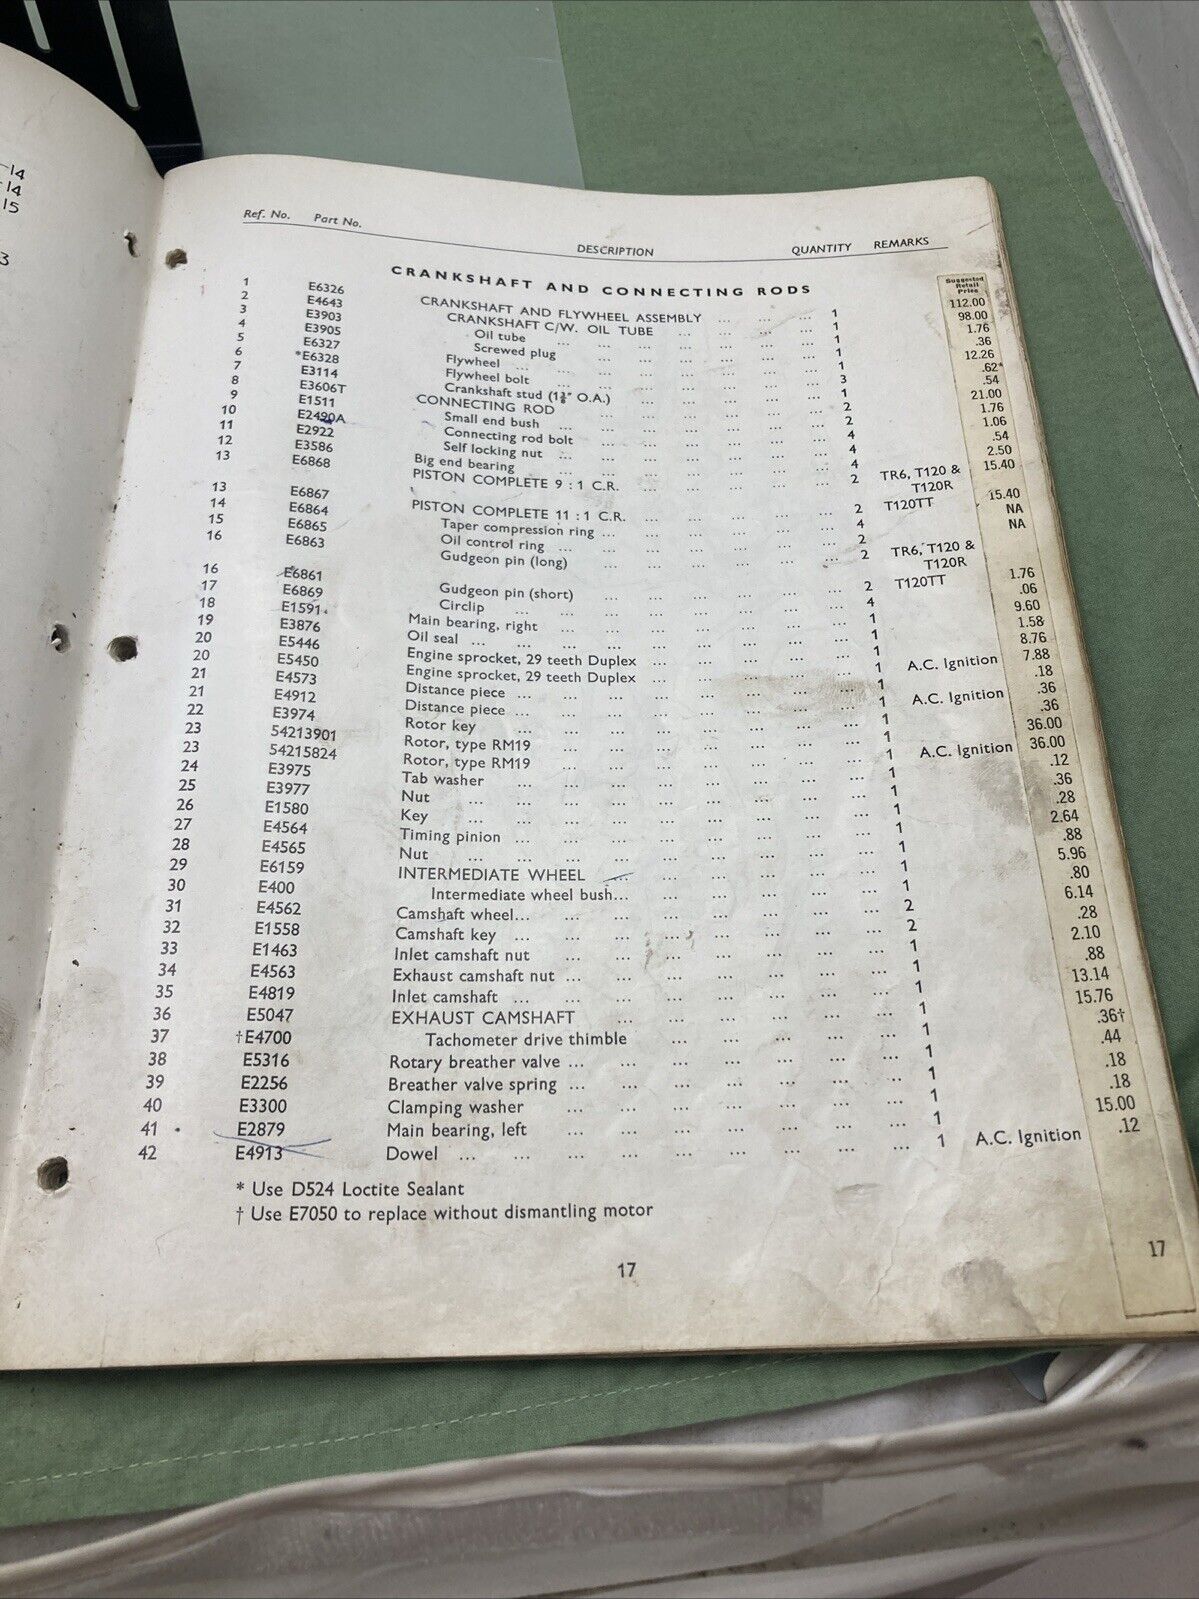 -14
-14
15
3
Ref. No. Part No. DESCRIPTION QUANTITY REMARKS
Suggested
Retail
Price
CRANKSHAFT AND CONNECTING RODS
1 E6326 CRANKSHAFT AND FLYWHEEL ASSEMBLY ... ... ... 1 112.00
2 E4643 CRANKSHAFT C/W. OIL TUBE ... ... ... ... 1 98.00
3 E3903 Oil tube ... ... ... ... ... ... 1 1.76
4 E3905 Screwed plug ... ... ... ... ... 1 .36
5 E6327 Flywheel ... ... ... ... ... ... 1 12.26
6 *E6328 Flywheel bolt ... ... ... ... ... 3 .62*
7 E3114 Crankshaft stud (1⅜" O.A.) ... ... ... ... 1 .54
8 E3606T CONNECTING ROD ... ... ... ... ... 2 21.00
9 E1511 Small end bush ... ... ... ... ... ... 2 1.76
10 E2490A Connecting rod bolt ... ... ... ... ... 4 1.06
11 E2922 Self locking nut ... ... ... ... ... ... 4 .54
12 E3586 Big end bearing ... ... ... ... ... ... 4 2.50
13 E6868 PISTON COMPLETE 9 : 1 C.R. ... ... ... ... ... 2 TR6, T120 & 15.40
T120R
13 E6867 PISTON COMPLETE 11 : 1 C.R. ... ... ... ... ... 2 T120TT 15.40
14 E6864 Taper compression ring ... ... ... ... ... ... 4 NA
15 E6865 Oil control ring ... ... ... ... ... ... 2 NA
16 E6863 Gudgeon pin (long) ... ... ... ... ... 2 TR6, T120 &
T120R
16 E6861 Gudgeon pin (short) ... ... ... ... ... 2 T120TT 1.76
17 E6869 Circlip ... ... ... ... ... ... ... 4 .06
18 E1591 Main bearing, right ... ... ... ... ... ... 1 9.60
19 E3876 Oil seal ... ... ... ... ... ... ... ... 1 1.58
20 E5446 Engine sprocket, 29 teeth Duplex ... ... ... ... ... 1 8.76
20 E5450 Engine sprocket, 29 teeth Duplex ... ... ... ... ... 1 A.C. Ignition 7.88
21 E4573 Distance piece ... ... ... ... ... ... ... 1 .18
21 E4912 Distance piece ... ... ... ... ... ... ... 1 A.C. Ignition .36
22 E3974 Rotor key ... ... ... ... ... ... ... 1 .36
23 54213901 Rotor, type RM19 ... ... ... ... ... ... 1 36.00
23 54215824 Rotor, type RM19 ... ... ... ... ... ... 1 A.C. Ignition 36.00
24 E3975 Tab washer ... ... ... ... ... ... ... 1 .12
25 E3977 Nut ... ... ... ... ... ... ... ... 1 .36
26 E1580 Key ... ... ... ... ... ... ... ... 1 .28
27 E4564 Timing pinion ... ... ... ... ... ... ... 1 2.64
28 E4565 Nut ... ... ... ... ... ... ... ... 1 .88
29 E6159 INTERMEDIATE WHEEL ... ... ... ... ... ... 1 5.96
30 E400 Intermediate wheel bush... ... ... ... ... ... 1 .80
31 E4562 Camshaft wheel... ... ... ... ... ... ... 2 6.14
32 E1558 Camshaft key ... ... ... ... ... ... ... 2 .28
33 E1463 Inlet camshaft nut ... ... ... ... ... ... 1 2.10
34 E4563 Exhaust camshaft nut ... ... ... ... ... ... ... 1 .88
35 E4819 Inlet camshaft ... ... ... ... ... ... ... 1 13.14
36 E5047 EXHAUST CAMSHAFT ... ... ... ... ... ... 1 15.76
37 †E4700 Tachometer drive thimble ... ... ... ... ... 1 .36†
38 E5316 Rotary breather valve ... ... ... ... ... ... ... 1 .44
39 E2256 Breather valve spring ... ... ... ... ... ... ... 1 .18
40 E3300 Clamping washer ... ... ... ... ... ... ... 1 .18
41 E2879 Main bearing, left ... ... ... ... ... ... ... 1 15.00
42 E4913 Dowel ... ... ... ... ... ... ... ... ... 1 A.C. Ignition .12
* Use D524 Loctite Sealant
† Use E7050 to replace without dismantling motor
17
17